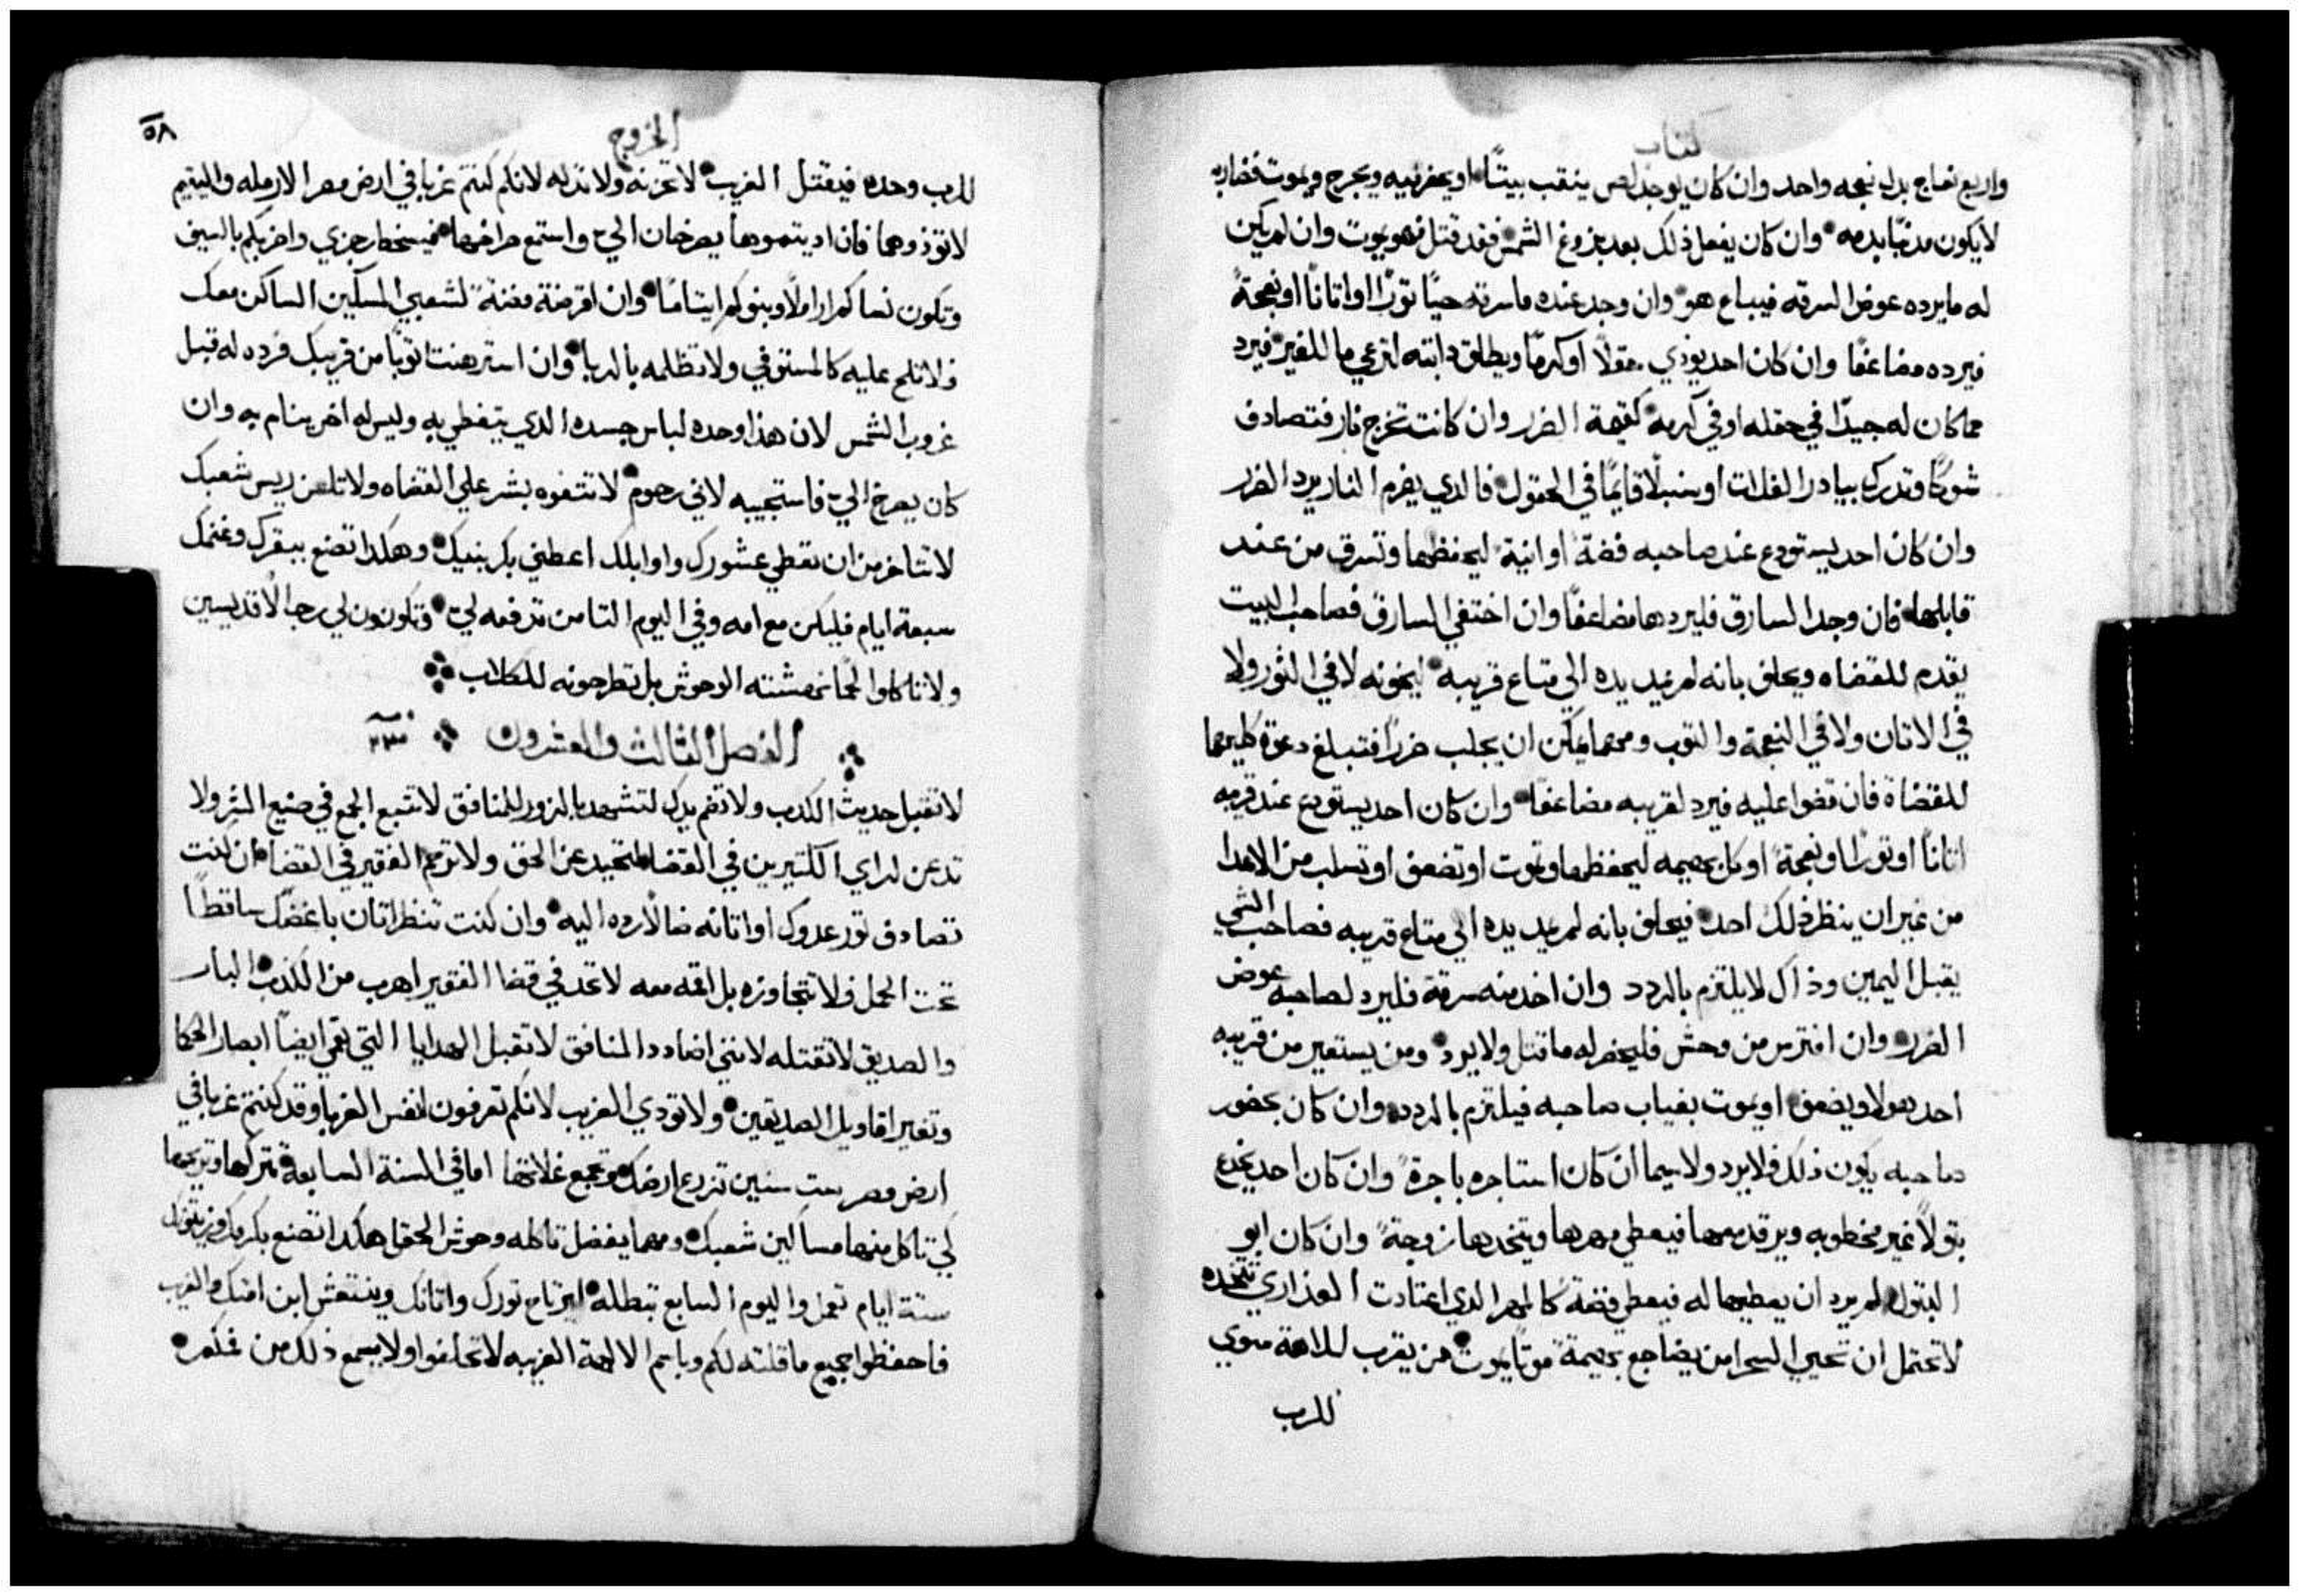 كتاب
واربع نعاج بدل نعجه واحد وان كان يوجد لص ينقب بيتًا او يحفر فيه ويجرح ويموت فضاربه
لا يكون مدنبًا بدمه وان كان يفعل ذلك بعد بزوغ الشمس فقد قتل فهو يموت وان لم يكن
له ما يرده عوض السرقه فيباع هو وان وجد عنده ما سرقه حيًا تورًا او اتانًا او نعجةً
فيرده مضاعفًا وان كان احد يوذي حقلًا او كرمًا ويطلق دابته لترعي ما للغير فيرد
مما كان له جيدًا في حقله او في كرمه كقيمة الضرر وان كانت تخرج نار فتصادف
شوكًا وتدرك بيادر الغلات او سنبلًا قايمًا في الحقول فالدي يضرم النار يرد الضرر
وان كان احد يستودع عند صاحبه فضة او انية ليحفظها وتسرق من عند
قابلها فان وجد السارق فليردها مضاعفًا وان اختفي السارق فصاحب البيت
يقدم للقضاه ويحلف بانه لم يمد يده الي متاع قريبه ليخونه لا في الثور ولا
في الاتان ولا في النعجة والثوب ومهما يمكن ان يجلب ضررًا فتبلغ دعوة كليهما
للقضاة فان قضوا عليه فيرد لقريبه مضاعفًا وان كان احد يستودع عند قريبه
اتانًا او تورًا او نعجةً او كل بهيمه ليحفظها وتموت او تضعف او تسلب من الاعدا
من غير ان ينظر ذلك احد فيحلف بانه لم يمد يده الي متاع قريبه فصاحب الشي
يقبل اليمين وذاك لا يلتزم بالردد وان اخد منه سرقة فليرد لصاحبه عوض
الضرر وان افترس من وحش فليحضر له ما قتل ولا يرد ومن يستعير من قريبه
احد هولا ويضعف او يموت بغياب صاحبه فيلتزم بالردد وان كان بحضور
صاحبه يكون ذلك فلا يرد ولا سيما ان كان استاجره باجرة وان كان احد يخدع
بتولًا غير مخطوبه ويرقد معها فيعطي مهرها ويتخدها زوجة وان كان ابو
البتول لم يرد ان يعطيها له فيعطي فضة كالمهر الدي اعتادت العذاري تتخده
لا تحتمل ان تحيي السحرا من يضاجع بهيمة موتًا يموت من يقرب للالهة سوي
للرب
الخروج
٥٨
للرب وحده فيقتل الغريب لا تحزنه ولا تدله لانكم كنتم غربا في ارض مصر الارمله واليتيم
لا توذوهما فان اديتموهما يصرخان الي واستمع صراخهما فيسخط رجزي واضربكم بالسيف
وتكون نساكم اراملًا وبنوكم ايتامًا وان اقرضة فضةً لشعبي المسكين الساكن معك
فلا تلح عليه كالمستوفي ولا تظلمه بالربا وان استرهنت توبًا من قريبك فرده له قبل
غروب الشمس لان هذا وحده لباس جسده الدي يتغطي به وليس له اخر ينام به وان
كان يصرخ الي فاستجيبه لاني رحوم لا تتفوه بشر علي القضاه ولا تلعن ريس شعبك
لا تتاخر من ان تعطي عشورك واوايلك اعطني بكر بنيك وهكدا تصنع ببقرك وغنمك
سبعة ايام فليكن مع امه وفي اليوم التامن تدفعه لي وتكونون لي رجالًا قديسين
ولا تاكلوا لحمًا نهشته الوحوش بل تطرحونه للكلاب
الفصل الثالث والعشرون
لا تقبل حديث الكدب ولا تضم يدك لتشهد بالزور للمنافق لا تتبع الجمع في صنيع الشر ولا
تدعن لراي الكتيرين في القضا لتحيد عن الحق ولا ترحم الفقير في القضا ان كنت
تصادف تور عدوك او اتانه ضالًا رده اليه وان كنت تنظر اتان باغضك ساقطًا
تحت الحمل فلا تتجاوزه بل اقمه معه لا تحد في قضا الفقير اهرب من الكدب البار
والصديق لا تقتله لانني اضادد المنافق لا تقبل الهدايا التي تعمي ايضًا ابصار الحكما
وتغير اقاويل الصديقين ولا تودي الغريب لانكم تعرفون انفس الغربا وقد كنتم غربا في
ارض مصر ست سنين تزرع ارضك وتجمع غلاتها اما في السنة السابعة تتركها وتريحها
لكي تاكل منها مساكين شعبك ومهما يفضل تاكله وحوش الحقل هكدا تصنع بكرمك وزيتونك
ستة ايام تعمل واليوم السابع تبطله ليرتاح تورك واتانك وينتعش ابن امتك والغريب
فاحفظوا جميع ما قلته لكم وباسم الالهة الغريبه لا تحلفوا ولا يسمع ذلك من فمكم